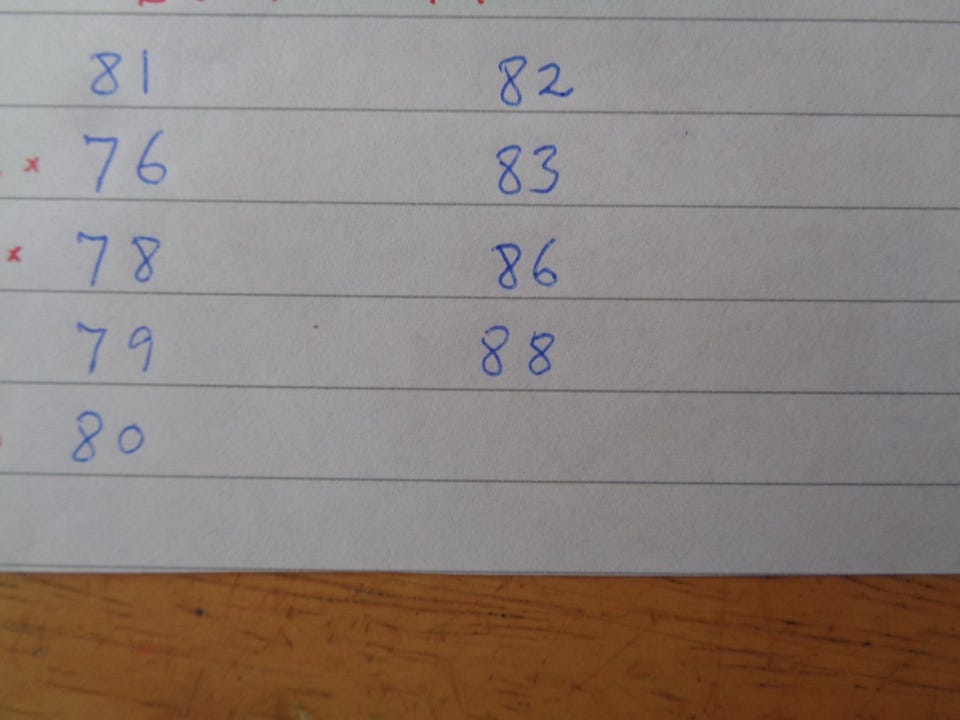 81 82
x 76 83
x 78 86
79 88
80